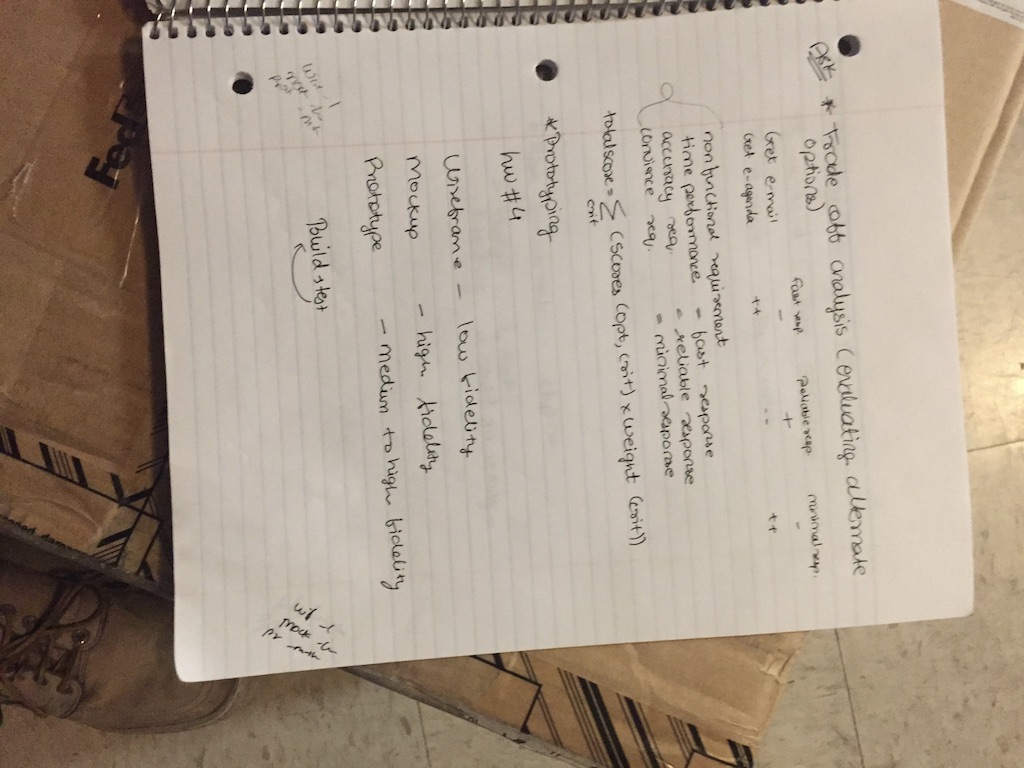 Ask * Trade off analysis (evaluating alternate
options)
fast resp reliable resp minimal resp.
Get e-mail - + -
Get e-agenda ++ -- ++
non functional requirement
time performance = fast response
accuracy req. = reliable response
convience req. = minimal response
total score = Σ (scores (opt, crit) x (weight (crit))
crit
* Prototyping
hw #4
Wireframe - low fidelity
Mockup - high fidelity
Prototype - medium to high fidelity
Build & test
FedEx